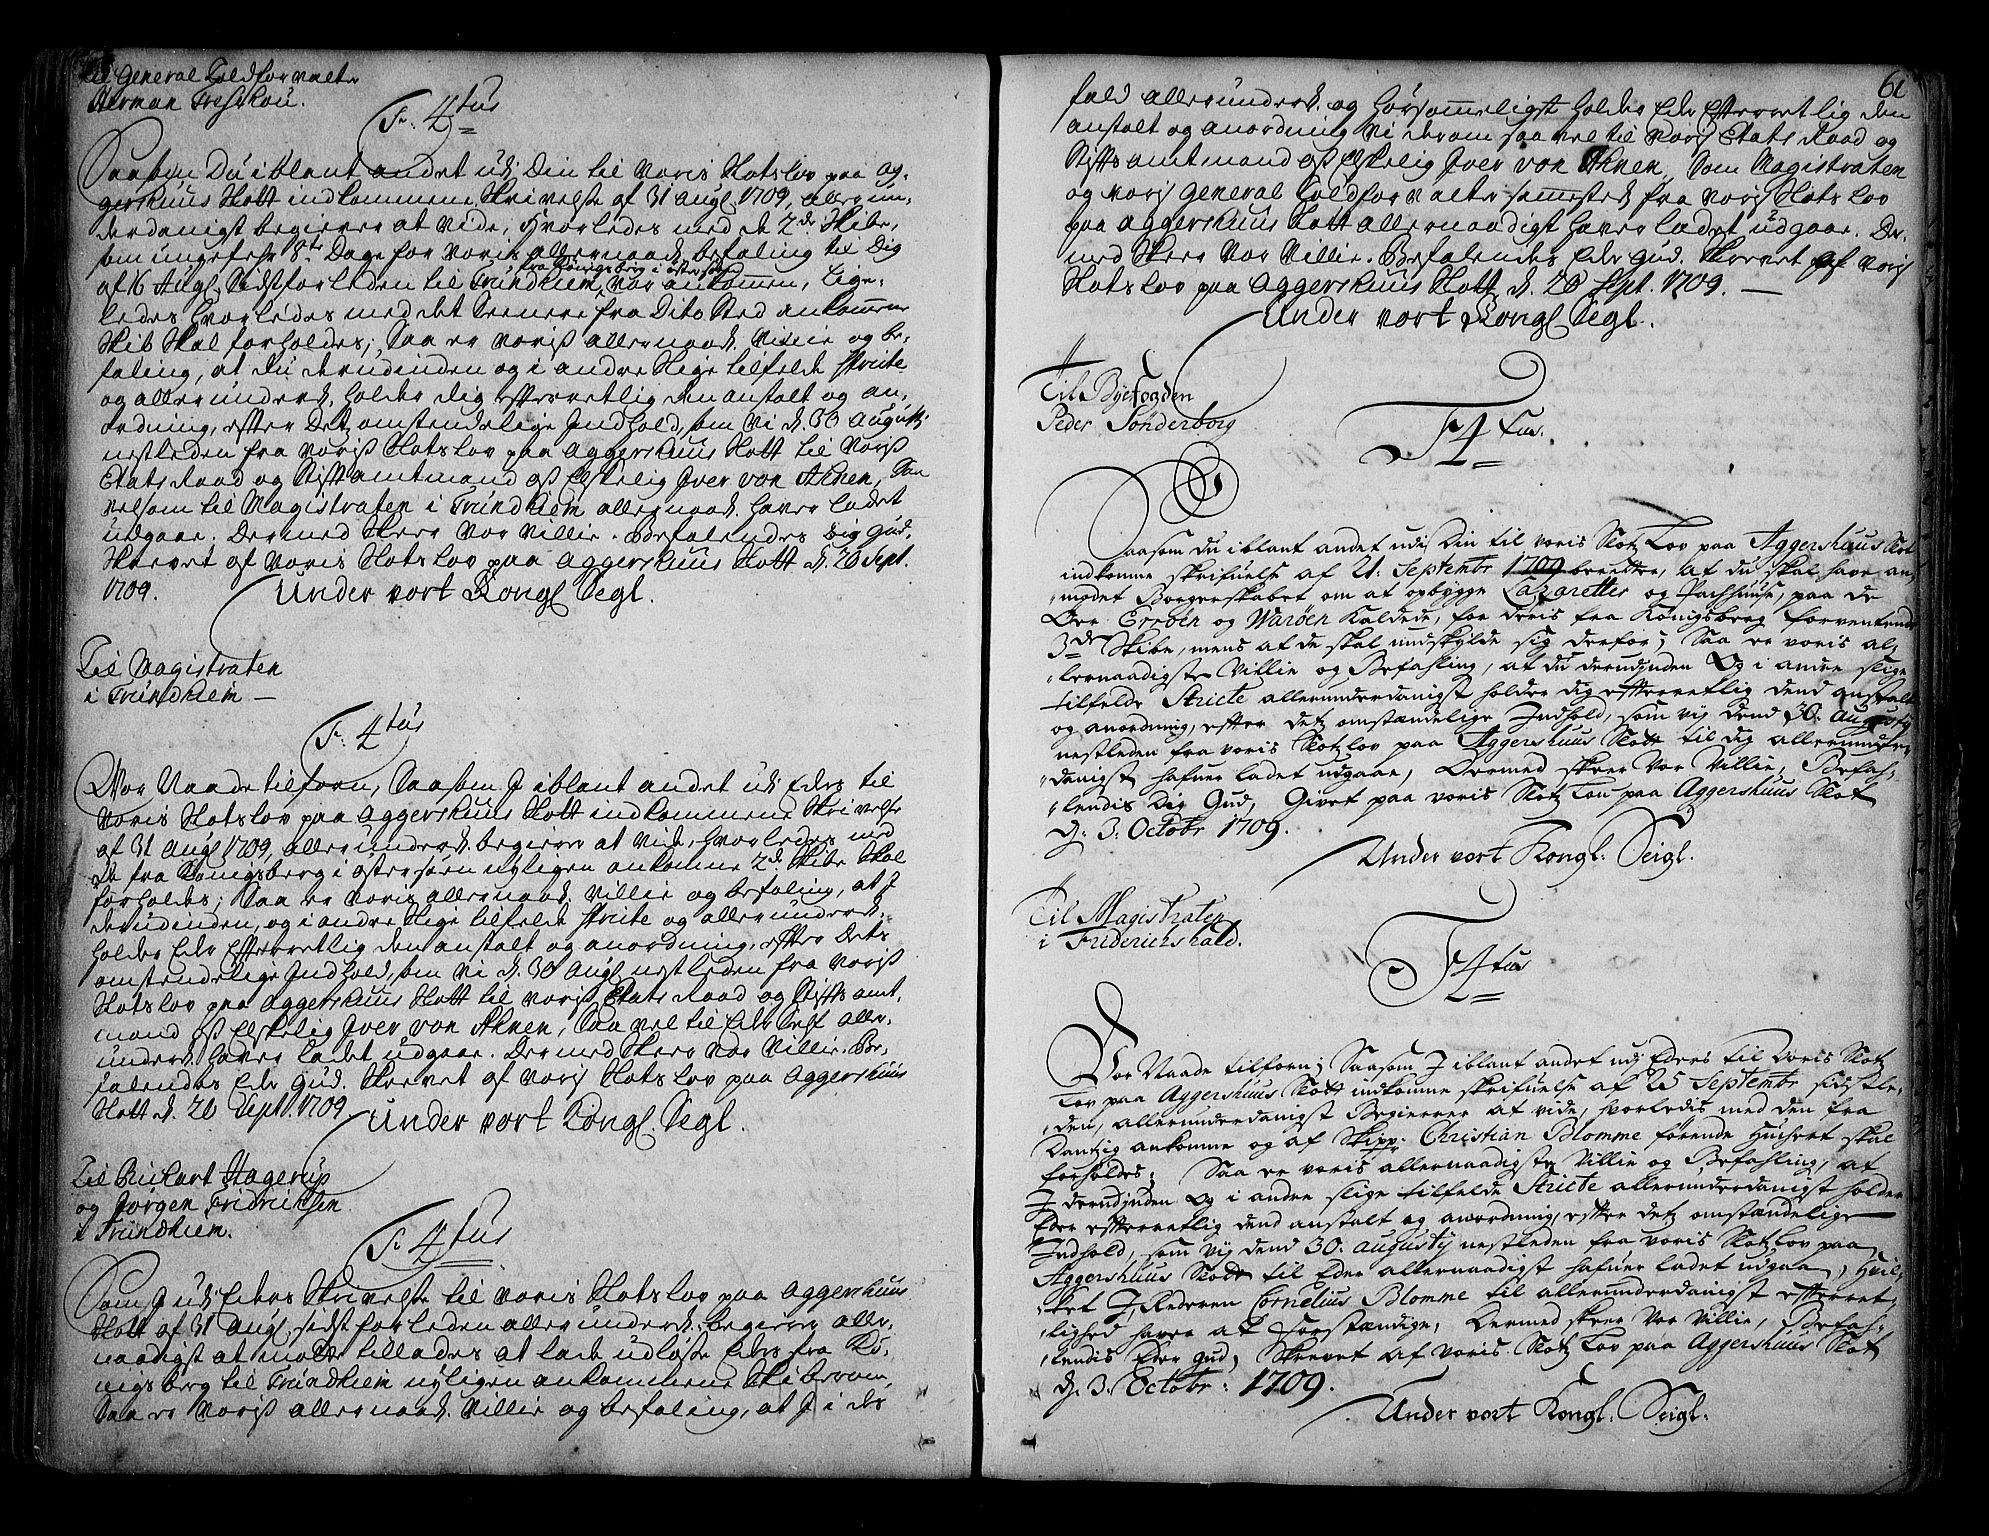 Til General Toldforvalter
Herman Treschou.
Fr. 4tus
Saasom Du iblant andet udj Din til Voris Slotslov paa Ag-
gershuus Slott indkommene Skrivelse af 31 Augl 1709, allerun-
derdanigst begierer at vide, hvorledes med de 2de Skibe,
som ungefehr 8te Dage for Voris allernaad. befaling til Dig
af 16 Augl. Sidstforleden til Trundhiem fra Königsberg i Østersøen var ankommen, lige-
ledes hvorledes med det Seenere fra Dito Sted ankomne
Skib Skal forholdes; Saa er Voriß allernaad. Villie og be-
faling, at Du derudinden og i andre slige tilfelde stricte
og allerunderd. holder dig efterretlig den anstalt og an-
ordning, efter Dets omstendelige Indhold, som Vi d. 30 Augustj
nestleden fra Voriß Slotslov paa Aggershuus Slott til Voriß
Etats Raad og Stiftamtmand oß Elskelig Iver von Ahnen, Saa
velsom til Magistraten i Trundhiem allernaad. haver ladet
udgaae. Dermed Skeer Vor Villie. Befalendes Dig Gud.
Skrevet af Voris Slotslov paa Aggershuus Slott d. 26 Sept.
1709.
Under vort Kongl Segl.
Til Magistraten
i Trundhiem
Fr. 4tus
Vor Naade tilforn, Saasom I iblant andet udj Eders til
Voris Slotslov paa Aggershuus Slott indkommene Skrivelse
af 31 Augl 1709, allerunderd. begierer at vide, hvorledes med
De fra Königsberg i Østersøen nyligen ankomne 2de Skibe Skal
forholdes; Saa er Voris allernaad. Villie og befaling, at I
derudinden, og i andre slige tilfelde stricte og allerunderd.
holder Eder Efterretlig den anstalt og anordning, efter Dets
omstendelige Indhold, som Vi d. 30 Augl nestleden fra Voriß
Slotslov paa Aggershuus Slott til Voriß Etats Raad og Stiftsamt-
mand oß Elskelig Iver von Ahnen, Saa vel til Eder Self aller-
underd. haver ladet udgaae. Dermed Skeer Vor Villie. Be-
falendes Eder Gud. Skrevet af Vorij Slotslov paa Aggershuus
Slott d. 26 Sept. 1709
Under vort Kongl. Segl.
Til Rickart Hagerup
og Jørgen Fridrichsen
i Trundhiem.
Fr 4tus
Som I udj Eders Skrivelse til Voris Slotslov paa Aggershuus
Slott af 31 Augl. sidstforleden allerunderd: begierer aller-
naadigst at maatte tillades at lade udloße Eders fra Kö-
nigsberg til Trundhiem nyligen ankommene Skiberum,
Saa er Voriß allernaad. Villie og befaling, at I i des
61
fald allerunderd. og hørsommeligst holder Eder Efterretlig den
anstalt og anordning Vi derom saa vel til Vorij Etats Raad og
Stiftsamtmand oß Elskelig Iver von Ahnen, Som Magistraten
og Vorij General Toldforvalter sammesteds fra Vorij Slotslov
paa Aggershuus Slott allernaadigst haver ladet udgaae. Der-
med Skeer Vor Villie. Befalendes Eder Gud. Skrevet af Vorij
Slotslov paa Aggershuus Slott d. 26 Sept. 1709.
Under vort Kongl Segl.
Til Byefogden
Peder Sønderborg
F 4tus.
Saasom du iblant andet udj Din til voris Slotz Lov paa Aggershuus Slot
indkomne skrifuelse af 21. Septembr 1709 beretter, at du skal have an-
modet Borgerskabet om at opbygge Lazaretter og Pachhuuse, paa de
Øer Errøen og Warøen kaldede, for deris fra Königsberg forventende
3de Skibe, mens at de skal undskylde sig derfor; Saa er voris al-
lernaadigste Villie og Befahling, at du derudjnden Og i andre slige
tilfelde Stricte allerunderdanigst holder dig efterretlig dend anstalt
og anordning, efter detz omstændelige Indhold, som vij dend 30. Augustij
nestleden fra voris Slotz Lov paa Aggershuus Slott til dig allerunder-
danigst hafuer ladet udgaae, Dermed skeer Vor Villie, Befah-
lendis Dig Gud, Givet paa voris Slotz Lou paa Aggershuus Slot
d: 3. Octobr 1709.
Under vort Kongl: Seigl.
Til Magistraten
i Friderichshald.
F 4tus
Vor Naade tilforn; Saasom I iblant andet udj Eders til Voris Slotz
Lov paa Aggershuus Slott indkomne skrifuelse af 25 Septembr sidstle-
den, allerunderdanigst Begierer at vide, hvorledis med den fra
Dantzig ankomne og af Skipp. Christian Blomme førende Huchert skal
forholdes; Saa er voris allernaadigste Villie og Befahling, at
I derudjnden Og i andre slige tilfelde Stricte allerunderdanigst holder
Eder efterretlig dend anstalt og anordning, efter detz omstændelige
Indhold, som vij dend 30. Augustij nestleden fra voris Slotz Lov paa
Aggershuus Slott til Eder allernaadigst hafuer ladet udgaae, Hvil-
ket I Rederen Cornelius Blomme til allerunderdanigst efterret-
lighed haver at forstændige, Dermed skeer Vor Villie, Befah-
lendis Eder Gud, Skrevet af Voris Slotz Lov paa Aggershuus Slot
d. 3. Octobr: 1709.
Under vort Kongl: Seigl: